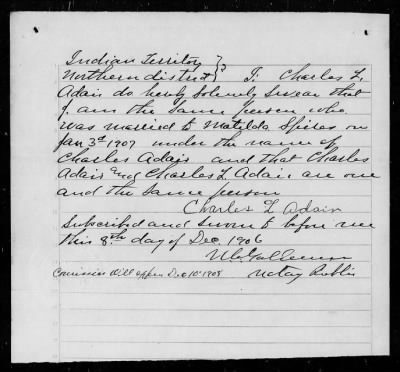 Indian Territory }
Northern district } I, Charles L.
Adair do hereby Solemly Swear that
I am the same person who
was married to Matilda Spires on
Jan 3rd 1907 under the name of
Charles Adair and that Charles
Adair and Charles L Adair are one
and the same person
Charles L Adair
Subscribed and sworn to before me
this 8th day of Dec. 1906
Notary Public
Commission Will expire Dec 10th 1908